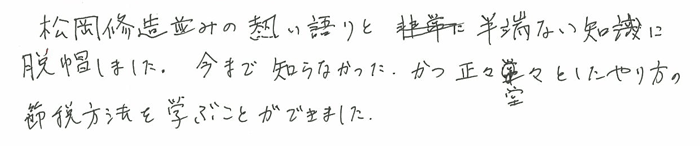 松岡修造並みの熱い語りと 半端ない知識に
脱帽しました。今まで知らなかった、かつ正々堂々としたやり方の
節税方法を学ぶことができました。